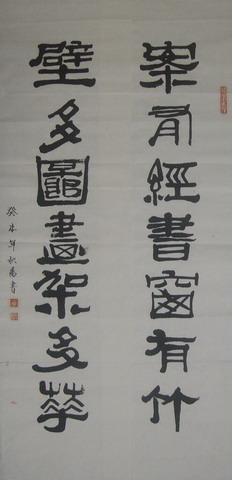 案有經書窗有竹
壁多圖畫架多華
癸未年秋書